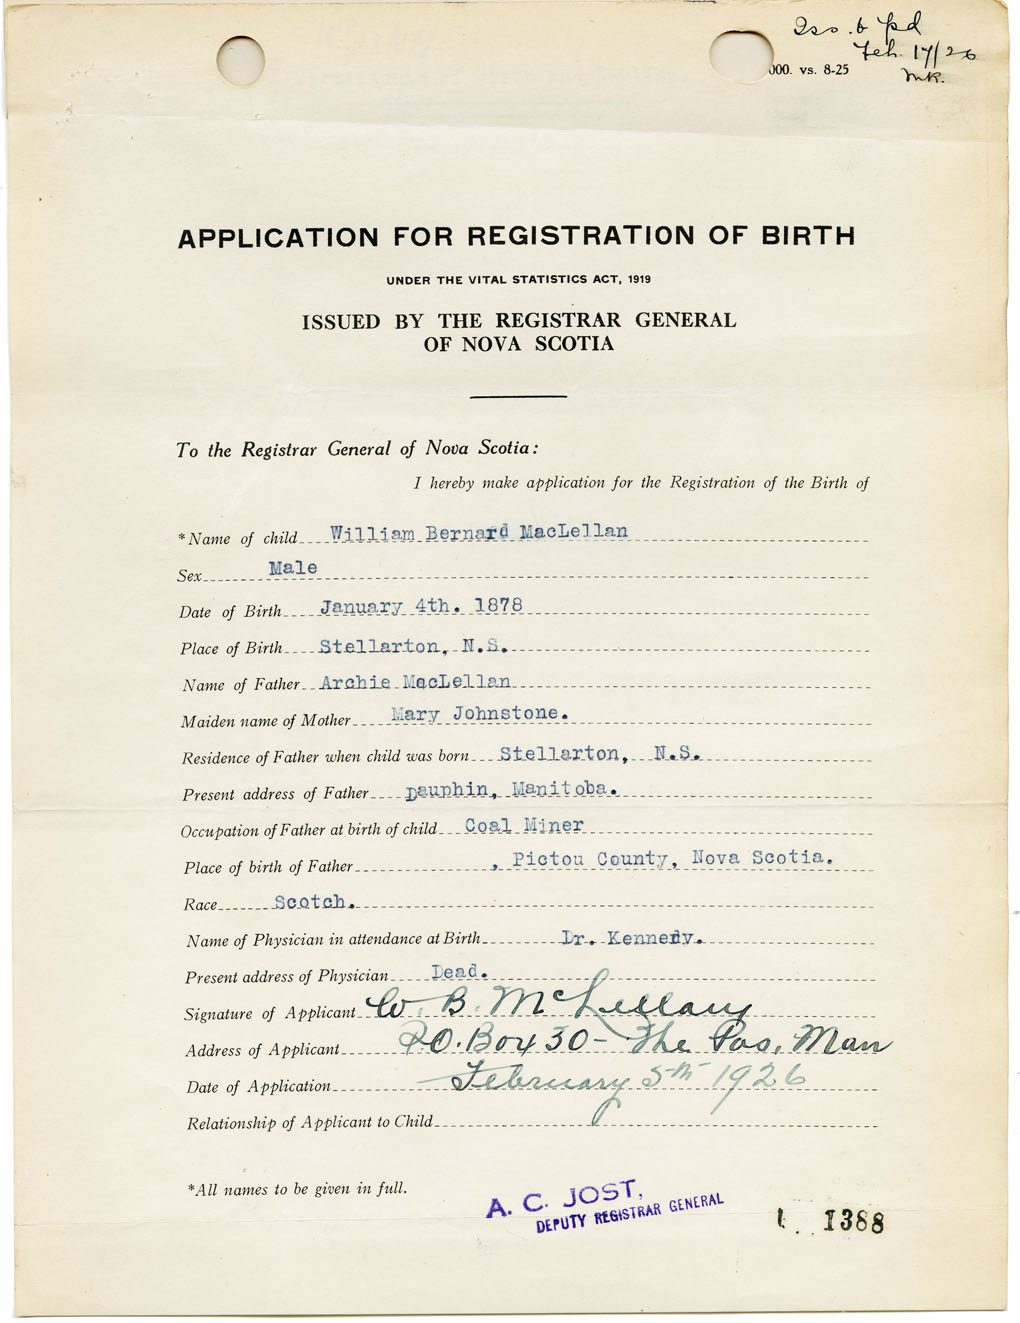 Iss. & Pd
Feb. 17/26
000. vs. 8-25
MK.
APPLICATION FOR REGISTRATION OF BIRTH
UNDER THE VITAL STATISTICS ACT, 1919
ISSUED BY THE REGISTRAR GENERAL
OF NOVA SCOTIA
To the Registrar General of Nova Scotia:
I hereby make application for the Registration of the Birth of
*Name of child William Bernard MacLellan
Sex Male
Date of Birth January 4th. 1878
Place of Birth Stellarton, N.S.
Name of Father Archie MacLellan
Maiden name of Mother Mary Johnstone.
Residence of Father when child was born Stellarton, N.S.
Present address of Father Dauphin, Manitoba.
Occupation of Father at birth of child Coal Miner
Place of birth of Father , Pictou County, Nova Scotia.
Race Scotch.
Name of Physician in attendance at Birth Dr. Kennedy.
Present address of Physician Dead.
Signature of Applicant W. B. McLellan
Address of Applicant P.O. Box 30 - The Pas, Man
Date of Application February 5th 1926
Relationship of Applicant to Child
*All names to be given in full.
A. C. JOST,
DEPUTY REGISTRAR GENERAL
1388